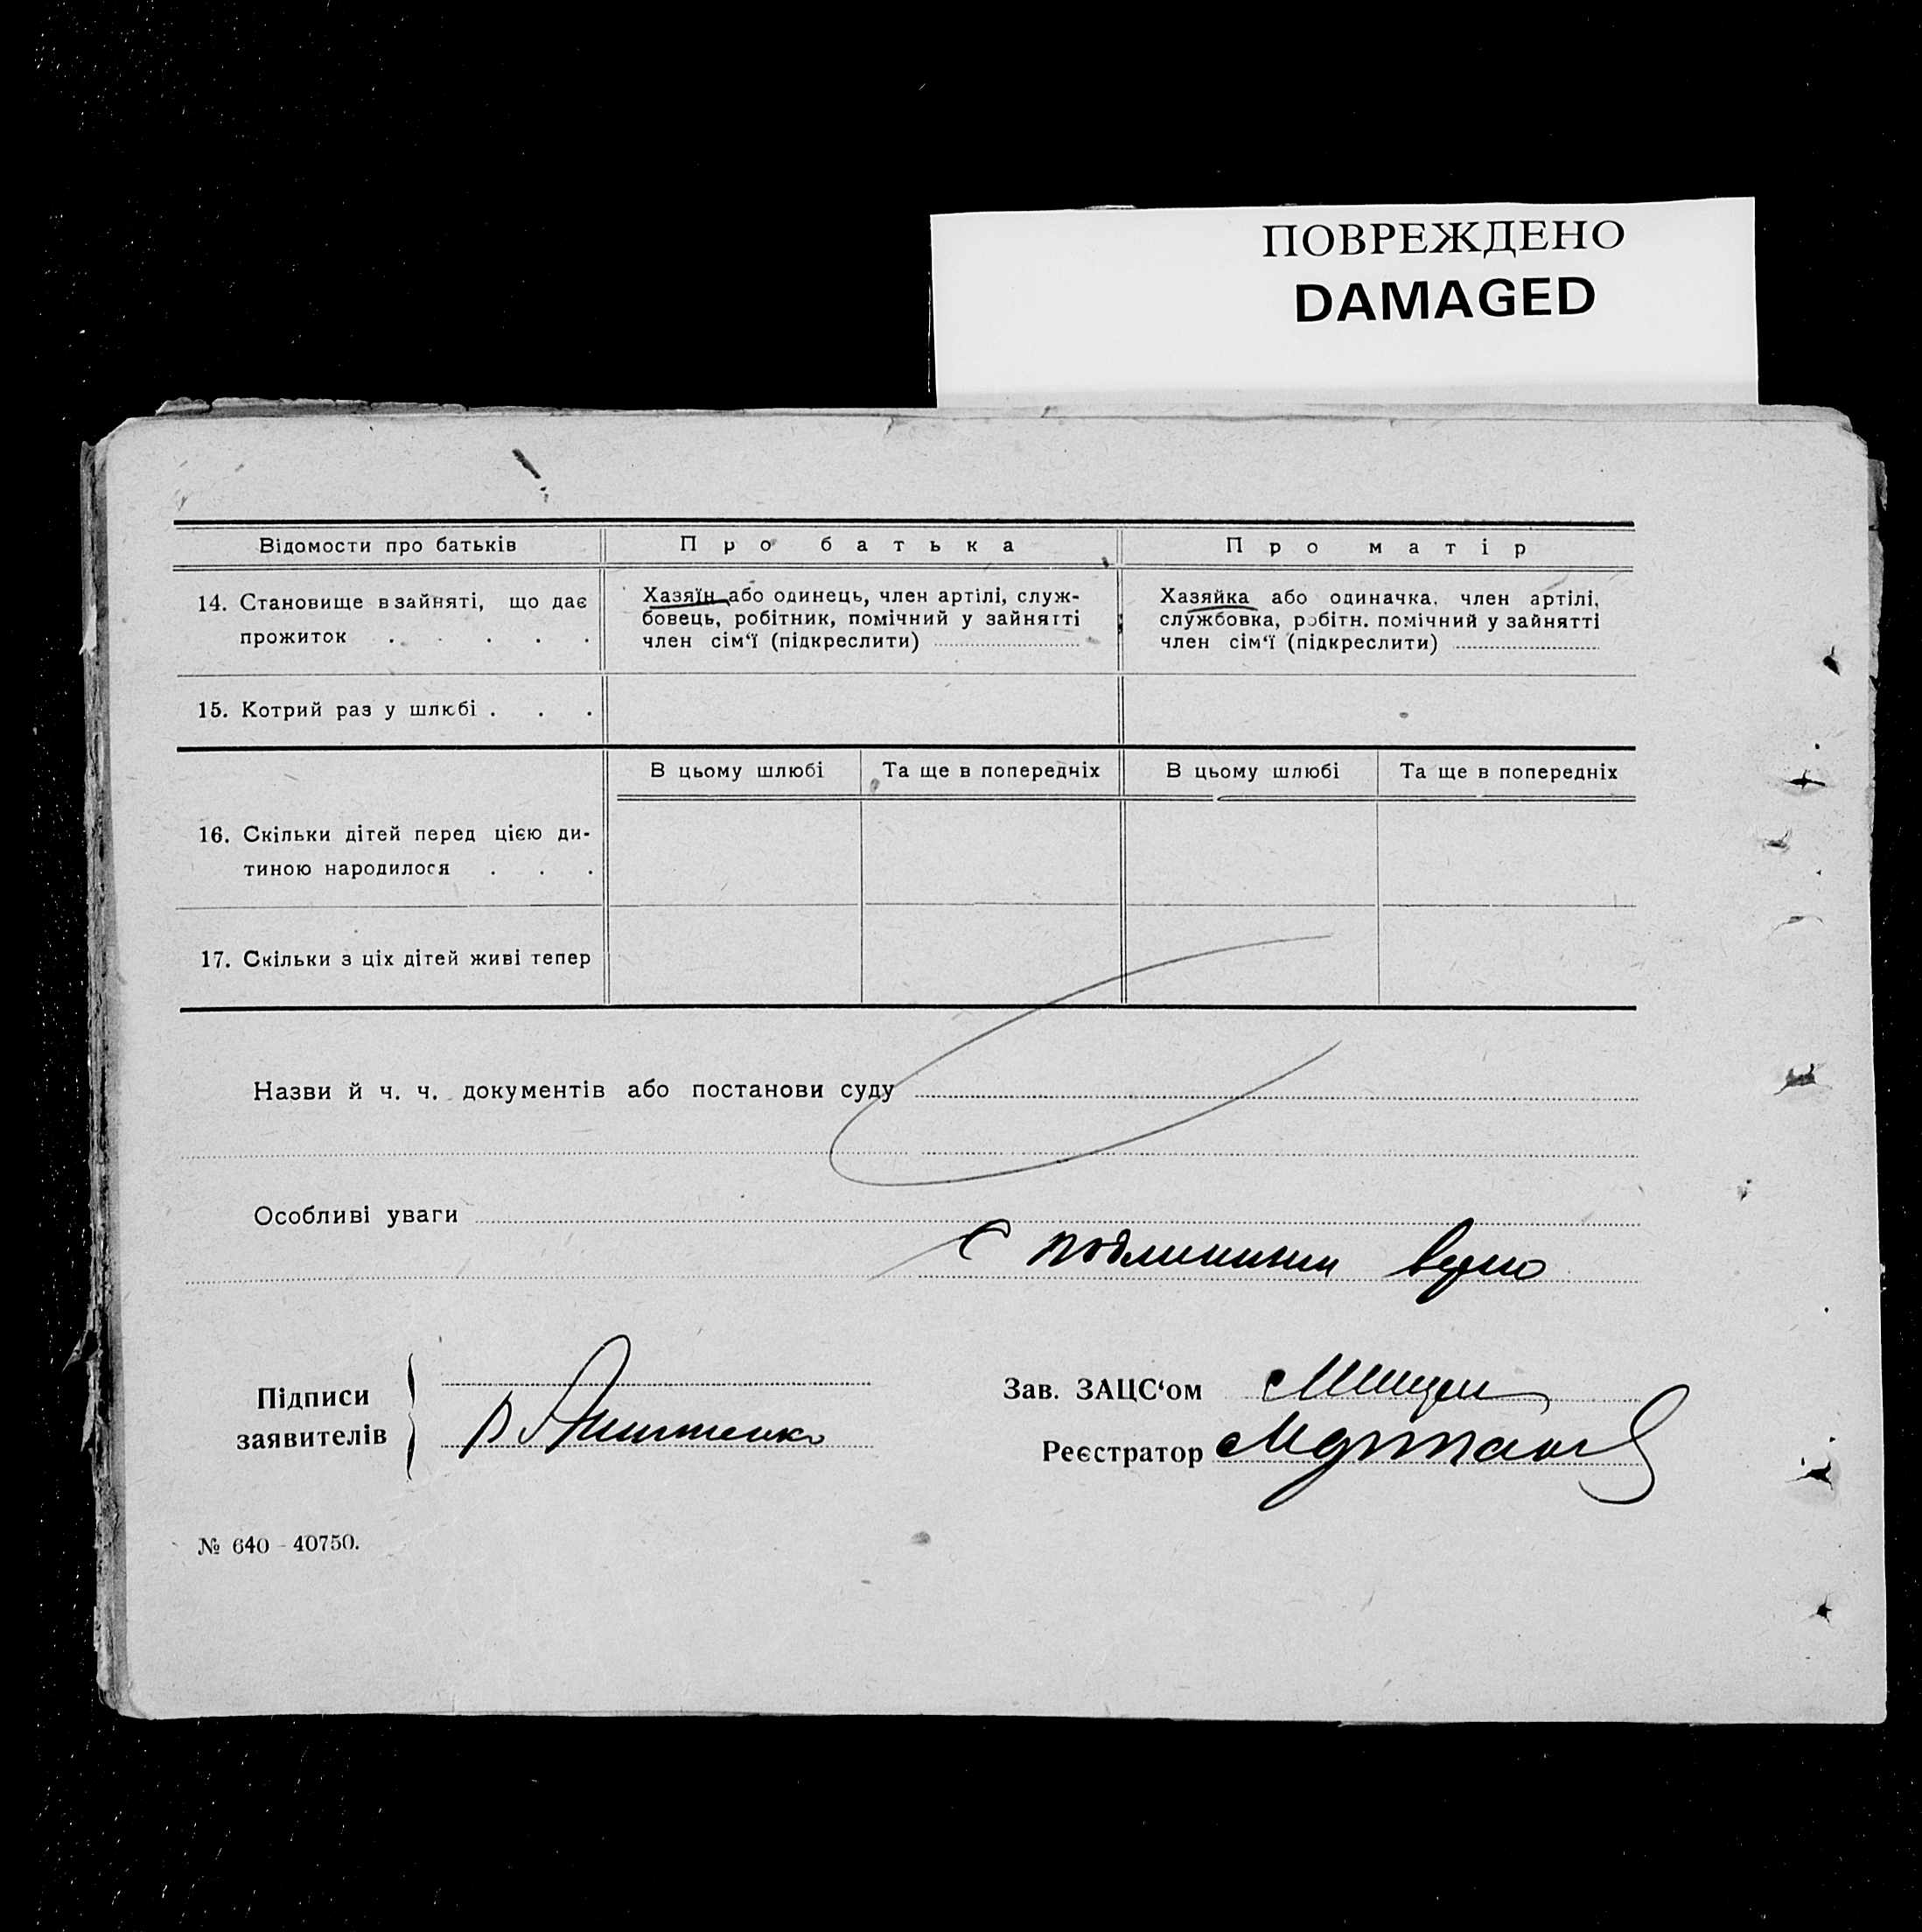 ПОВРЕЖДЕНО
DAMAGED
Відомости про батьків
Про батька
Про матір
14. Становище в зайняті, що дає
прожиток . . . . .
Хазяїн або одинець, член артілі, служ-
бовець, робітник, помічний у зайнятті
член сім‘ї (підкреслити)
Хазяйка або одиначка, член артілі,
службовка, робітн. помічний у зайнятті
член сім‘ї (підкреслити)
15. Котрий раз у шлюбі . . .
В цьому шлюбі
Та ще в попередніх
В цьому шлюбі
Та ще в попередніх
16. Скільки дітей перед цією ди-
тиною народилося . . .
17. Скільки з ціх дітей живі тепер
Назви й ч. ч. документів або постанови суду
Особливі уваги
С подлинным верно
Підписи
заявителів
Зав. ЗАЦС‘ом
Реєстратор
№ 640 - 40750.